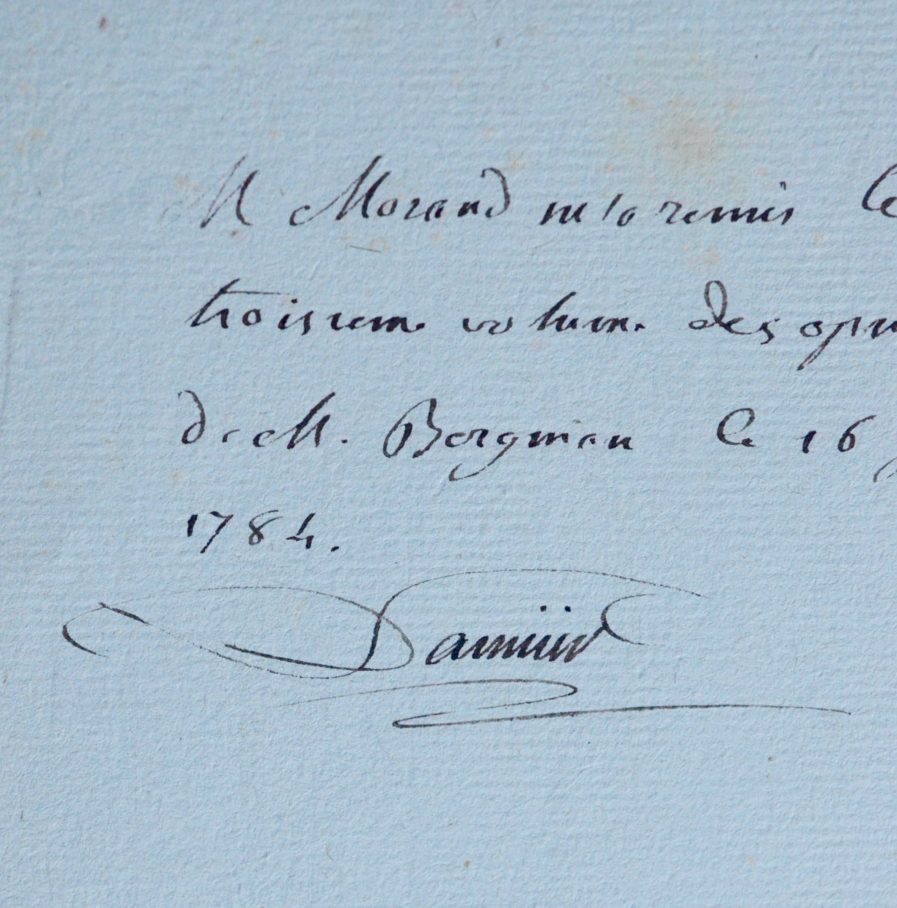 M Morand m'a remis le
troisieme volume des opu
de M. Bergman le 16
1784.